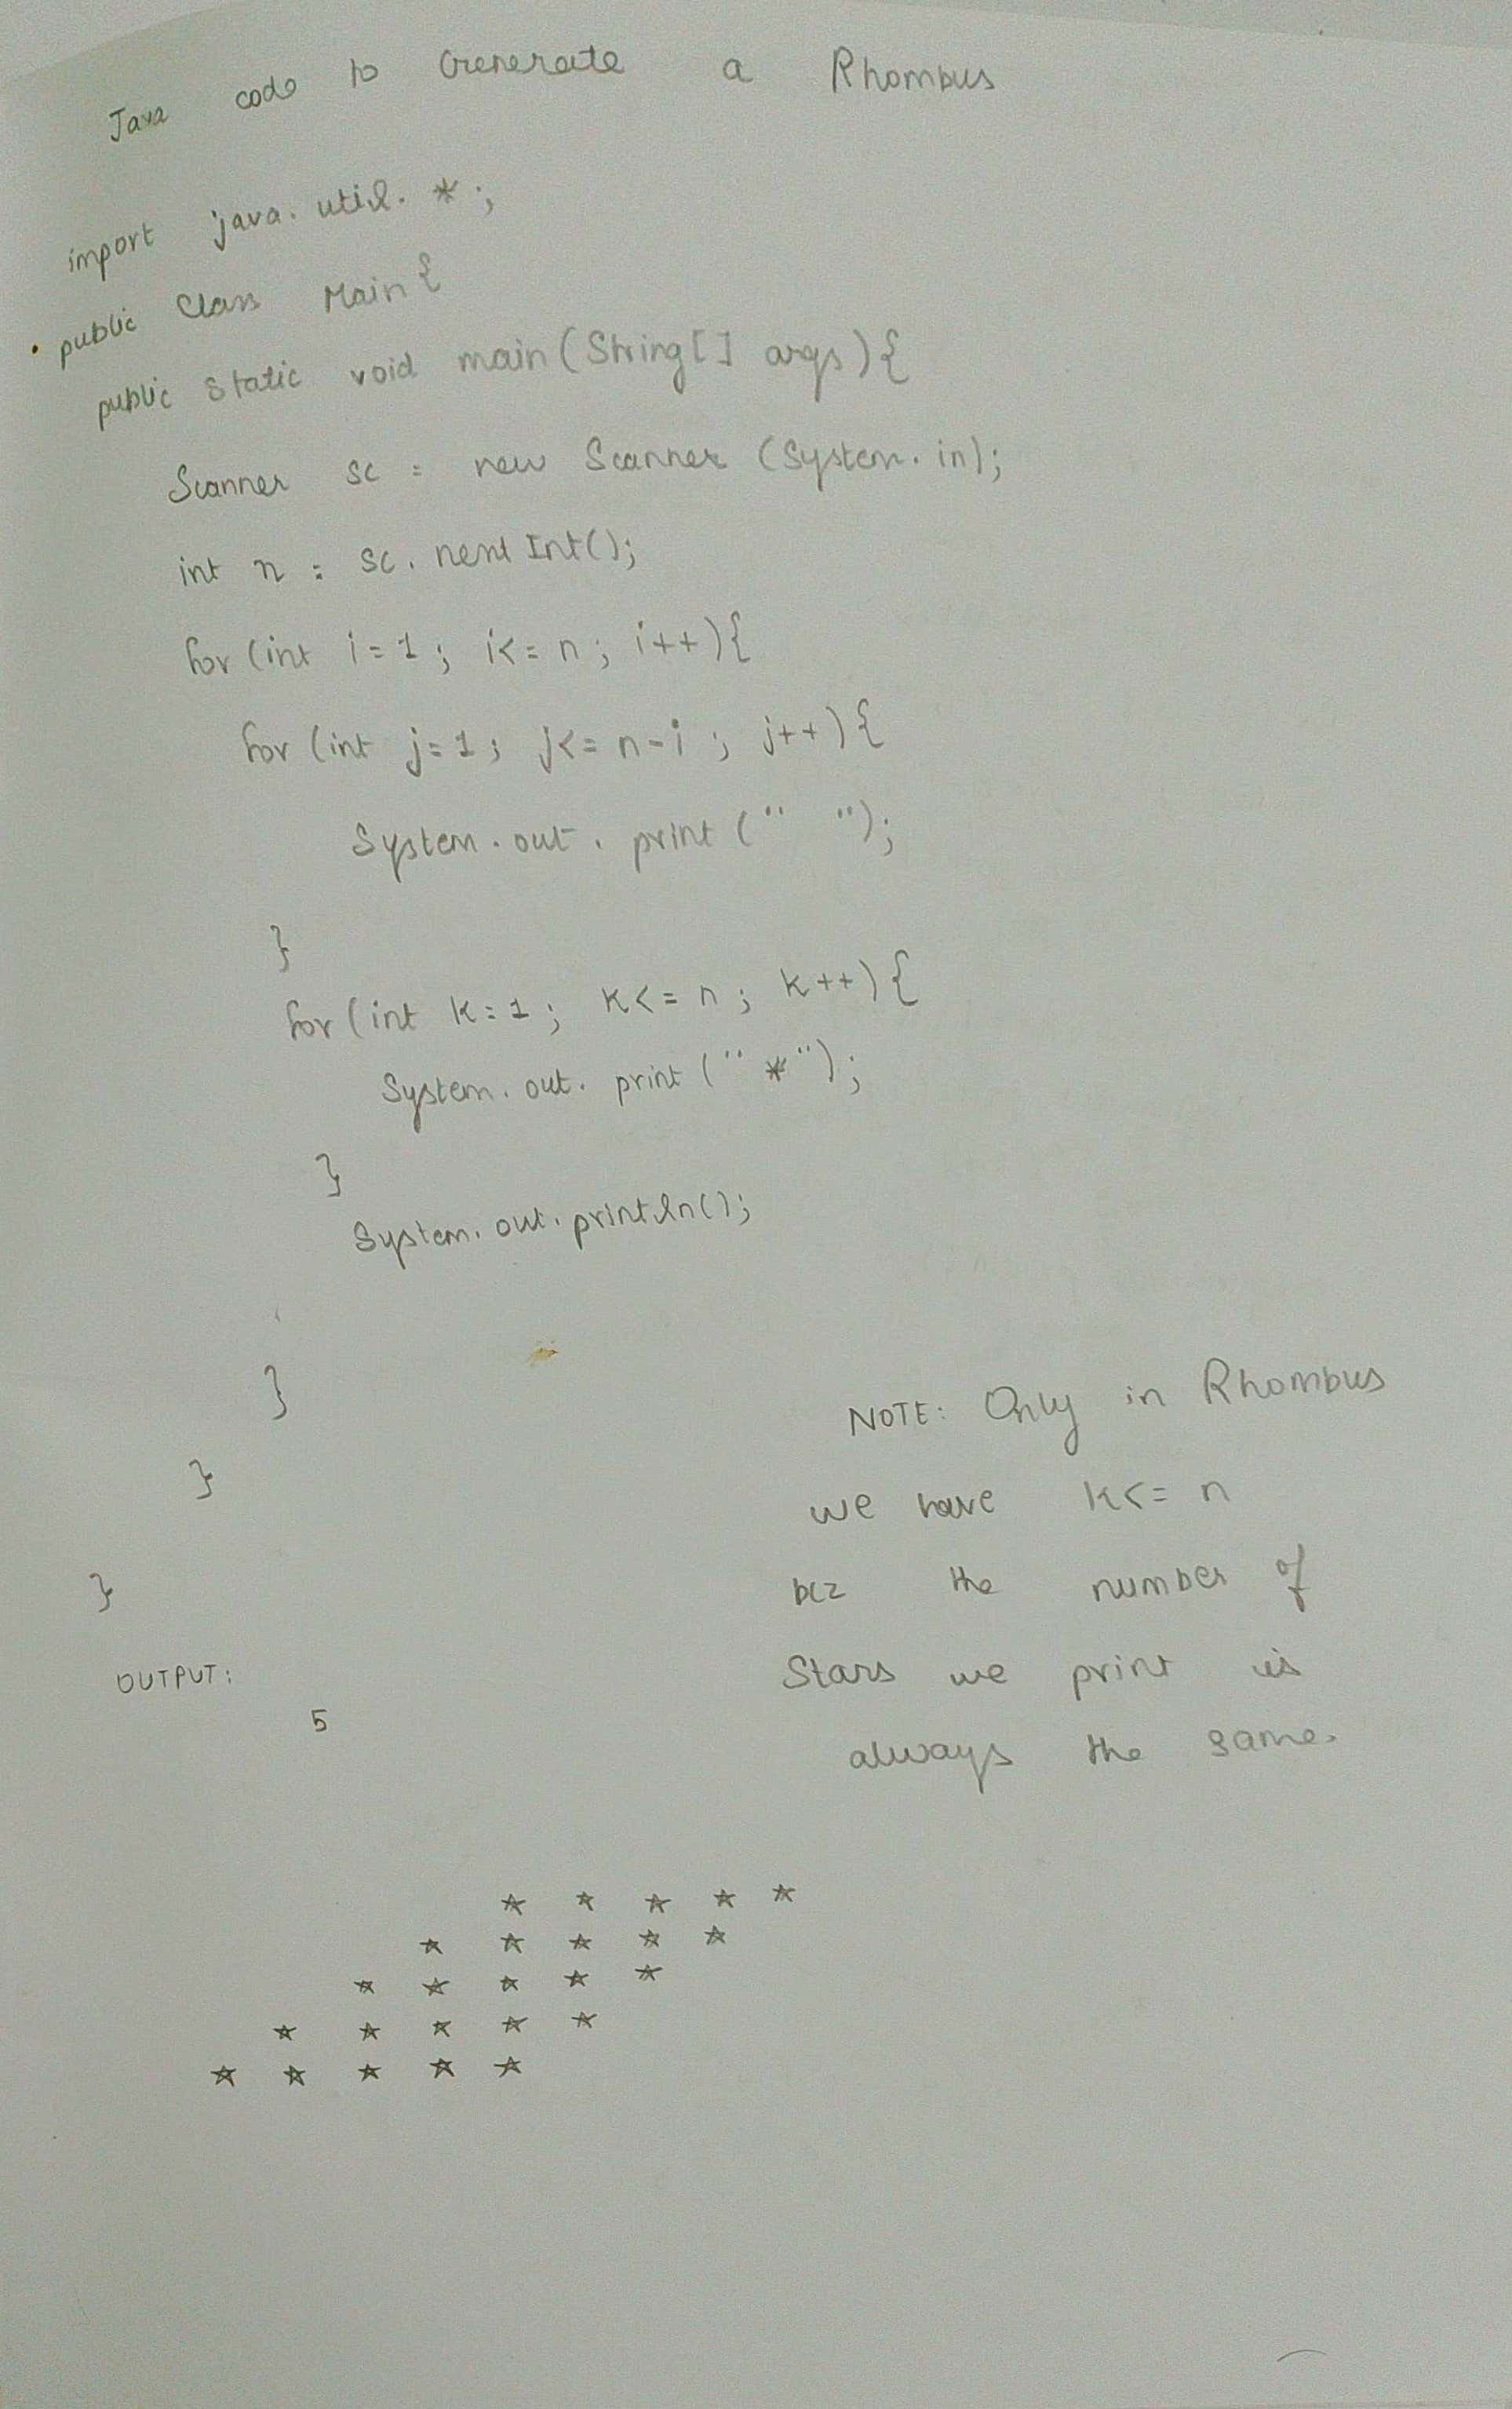 Java code to Generate a Rhombus
import java.util.*;
public class Main{
public static void main(String[] args){
Scanner sc = new Scanner (System.in);
int n = sc.nextInt();
for (int i=1; i<=n; i++){
for (int j=1; j<=n-i; j++){
System.out.print(" ");
}
for (int k=1; k<=n; k++){
System.out.print("*");
}
System.out.println();
}
}
}
OUTPUT:
5
* * * * *
* * * * *
* * * * *
* * * * *
* * * * *
NOTE: Only in Rhombus
we have k<=n
bcz the number of
Stars we print is
always the same.